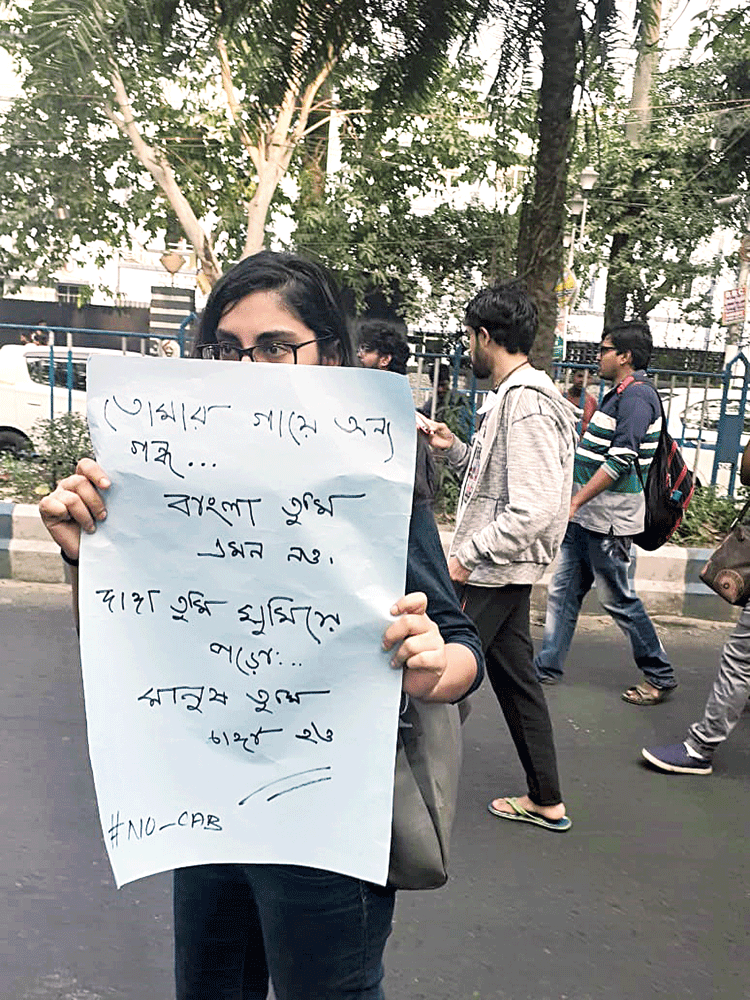 তোমার গায়ে অন্য
গন্ধ...
বাংলা তুমি
এমন নও.
দাঙ্গা তুমি ঘুমিয়ে
পড়ো...
মানুষ তুমি
চাঙ্গা হও
#NO_CAB